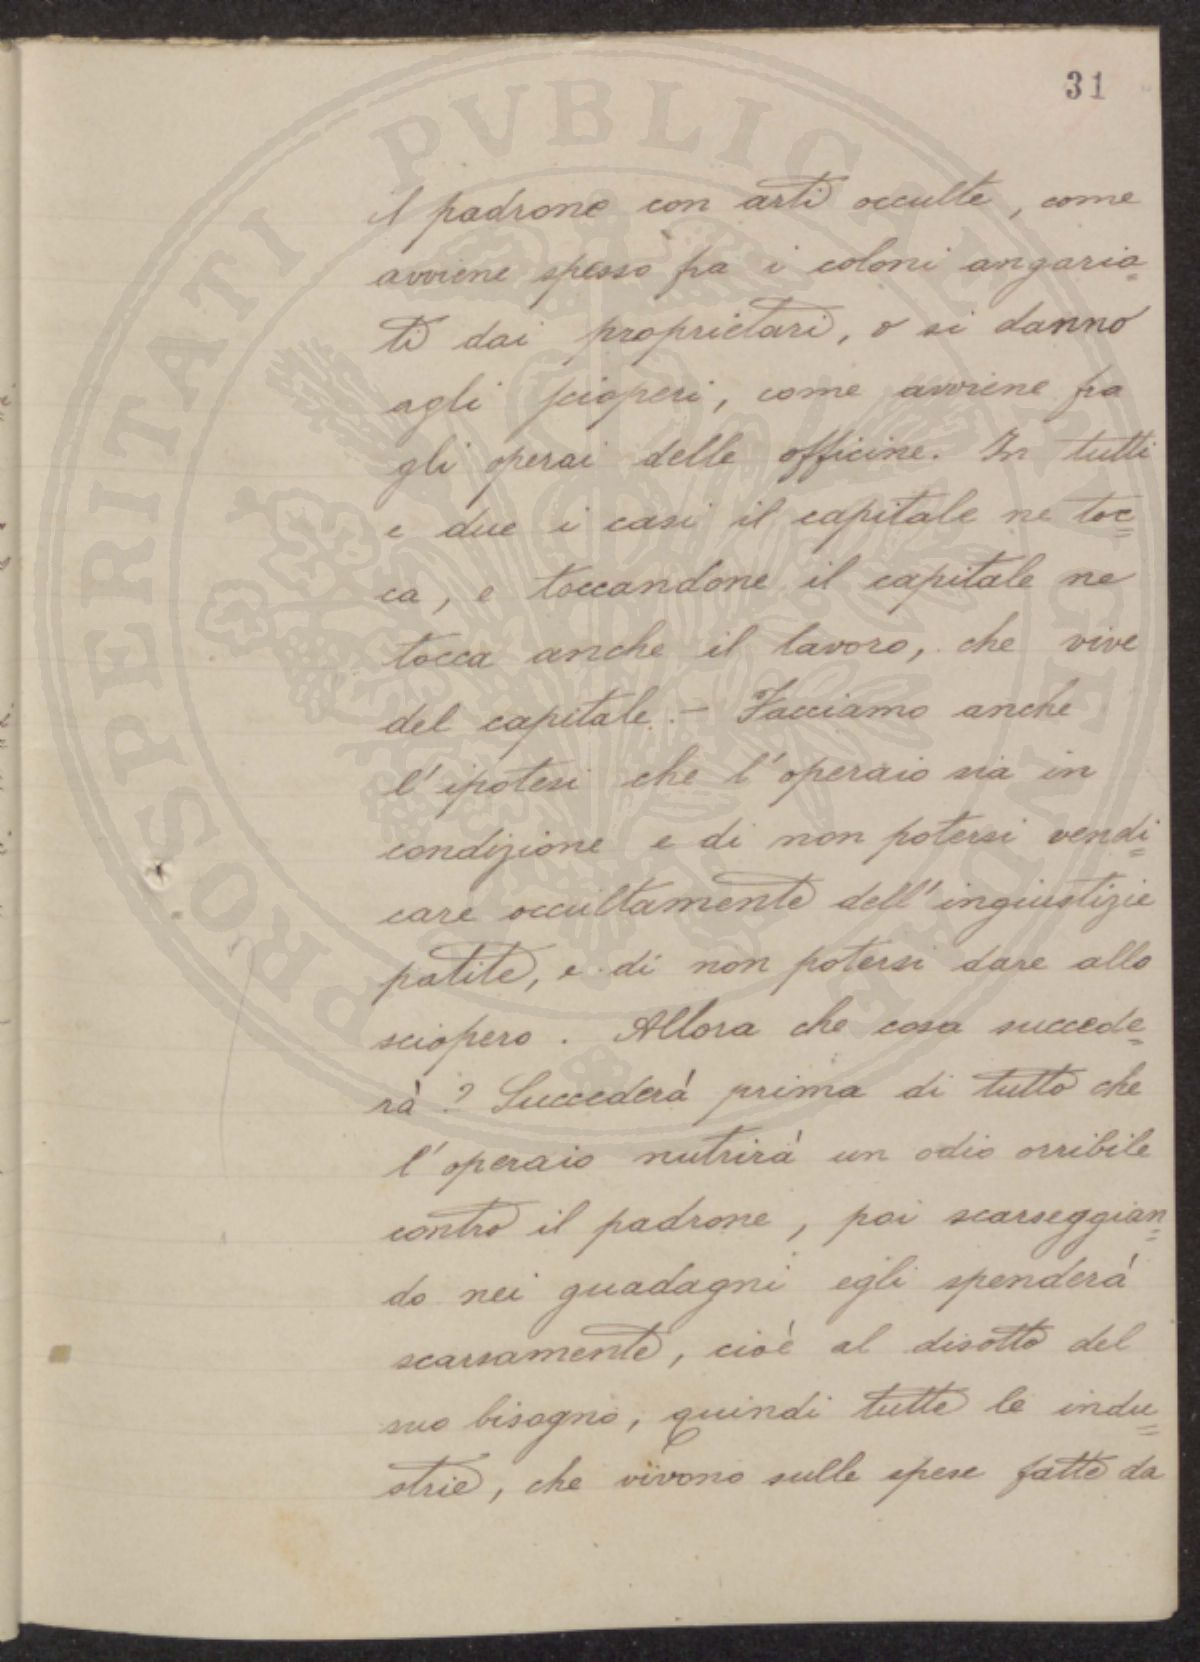 31
il padrone con arti occulte, come
avviene spesso fra i coloni angaria=
ti dai proprietari, o si danno
agli scioperi, come avviene fra
gli operai delle officine. In tutti
e due i casi il capitale ne toc=
ca, e toccandone il capitale ne
tocca anche il lavoro, che vive
del capitale. – Facciamo anche
l'ipotesi che l'operaio sia in
condizione e di non potersi vendi=
care occultamente dell'ingiustizie
patite, e di non potersi dare allo
sciopero. Allora che cosa succede=
rà? Succederà prima di tutto che
l'operaio nutrirà un odio orribile
contro il padrone, poi scarseggian=
do nei guadagni egli spenderà
scarsamente, cioè al disotto del
suo bisogno, quindi tutte le indu=
strie, che vivono sulle spese fatte da
PROSPERITATI PVBLICAE AVGENDAE